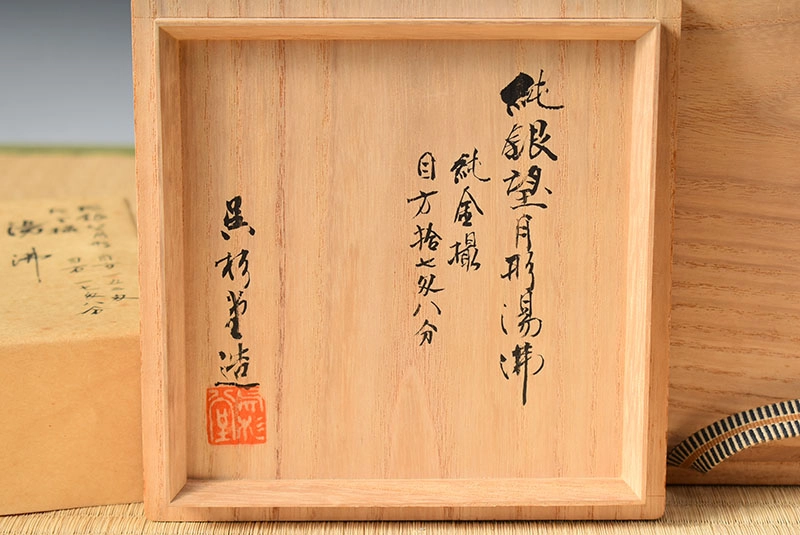 純銀望月形湯沸
純金撮
目方拾七匁八分
呉杉堂造
湯沸